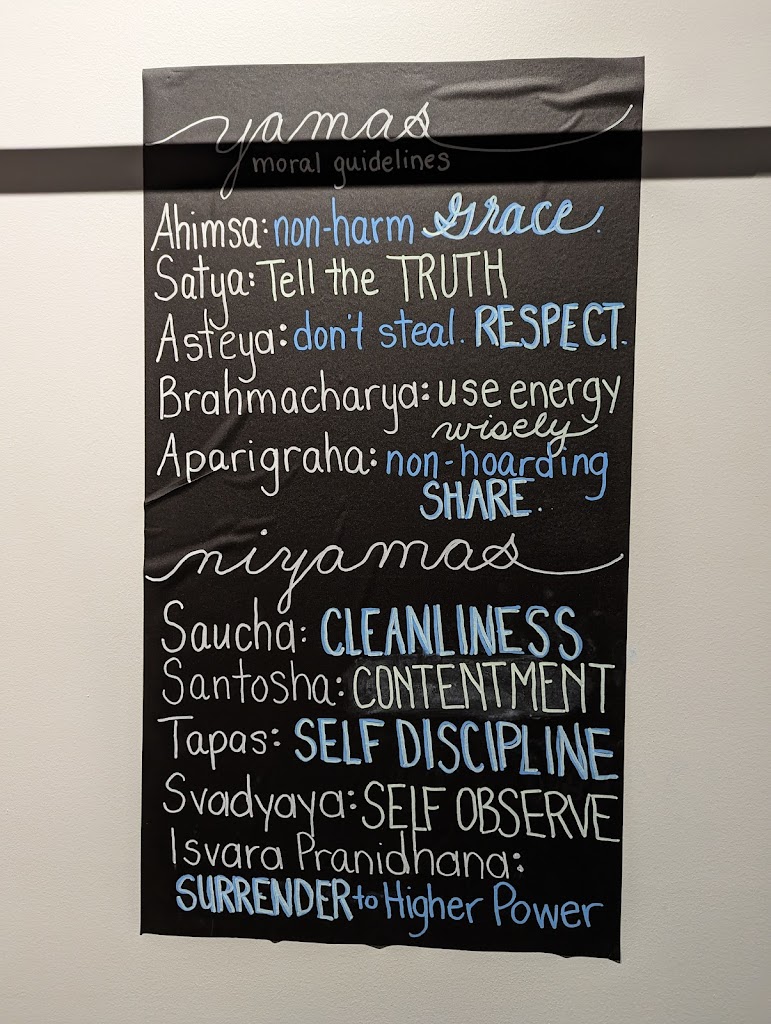 yamas
moral guidelines
Ahimsa: non-harm Grace.
Satya: Tell the TRUTH
Asteya: don't steal. RESPECT.
Brahmacharya: use energy
wisely
Aparigraha: non-hoarding
SHARE.
niyamas
Saucha: CLEANLINESS
Santosha: CONTENTMENT
Tapas: SELF DISCIPLINE
Svadyaya: SELF OBSERVE
Isvara Pranidhana:
SURRENDER to Higher Power